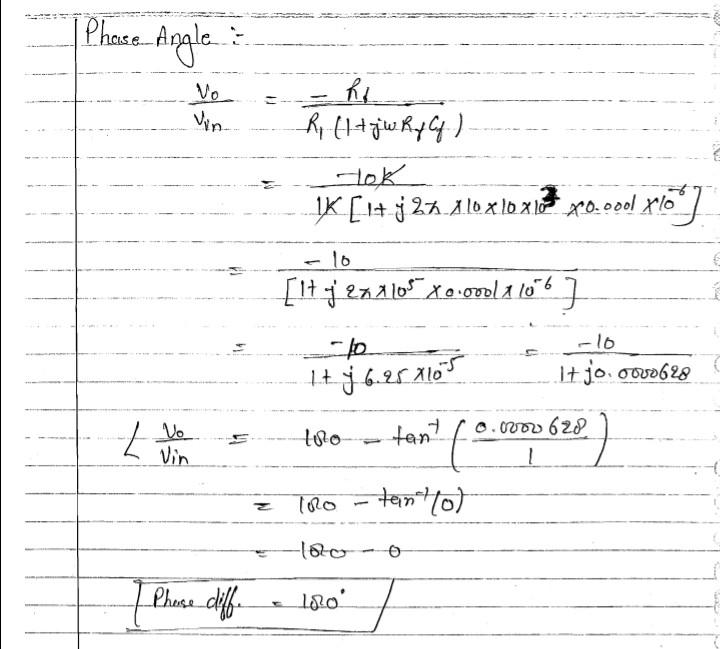 Phase Angle :-
Vo/Vin = -Rf / R1 (1+jwRfCf)
= -10K / 1K [1+ j 2π x10x10x10^3 x0.0001 x10^-6]
= -10 / [1+ j 2πx10^5 x0.0001x10^-6]
= -10 / 1+ j 6.25 x10^-5 = -10 / 1+ j0.0000628
∠ Vo/Vin = 180 - tan^-1 (0.0000628 / 1)
= 180 - tan^-1(0)
= 180 - 0
Phase diff. = 180°